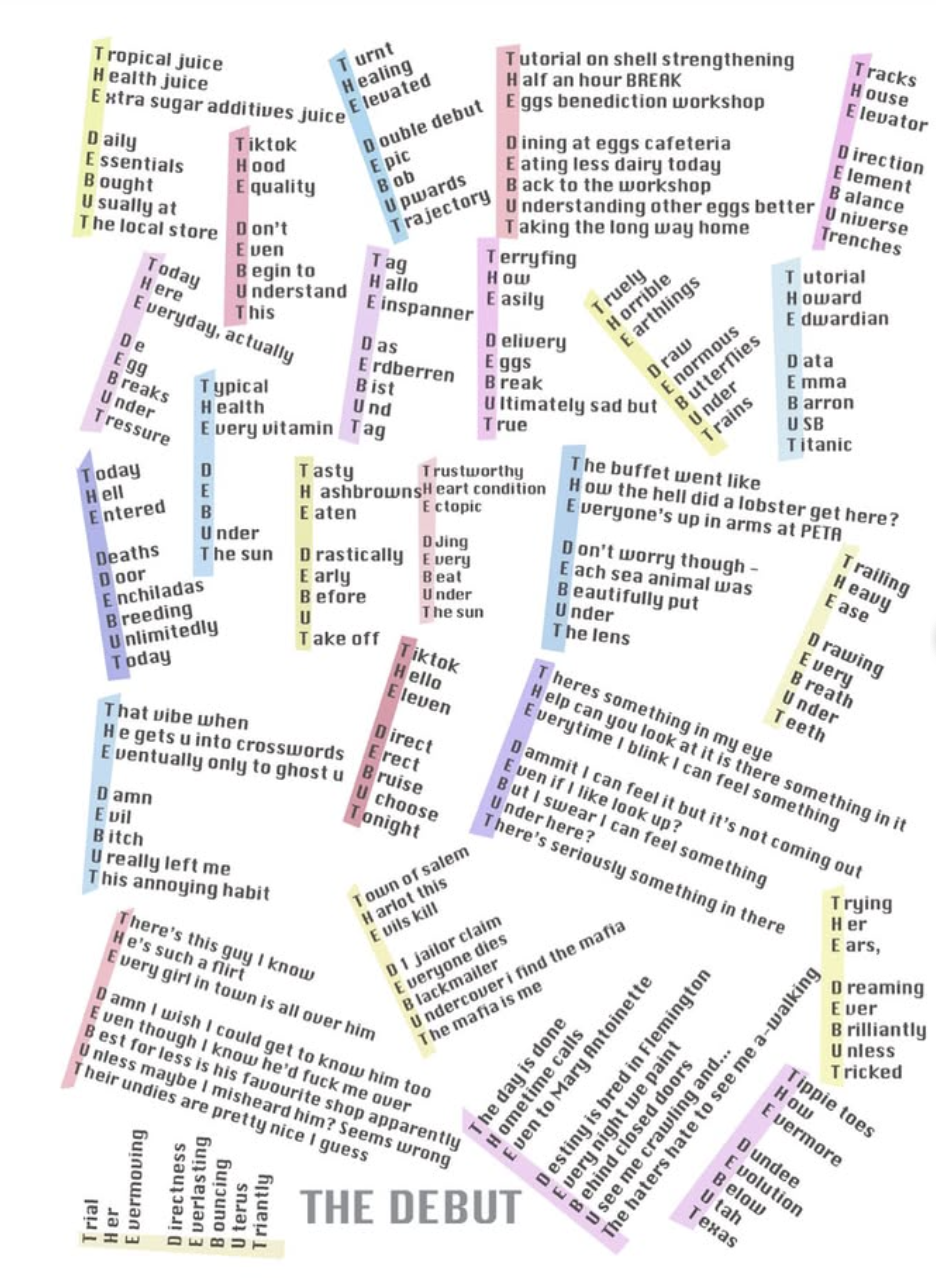 Tropical juice
Health juice
Extra sugar additives juice
Daily
Essentials
Bought
Usually at
The local store
Tiktok
Hood
Equality
Don't
Even
Begin to
Understand
This
Turnt
Healing
Elevated
Double debut
Epic
Bob
Upwards
Trajectory
Tutorial on shell strengthening
Half an hour BREAK
Eggs benediction workshop
Dining at eggs cafeteria
Eating less dairy today
Back to the workshop
Understanding other eggs better
Taking the long way home
Tracks
House
Elevator
Direction
Element
Balance
Universe
Trenches
Today
Here
Everyday, actually
De
Egg
Breaks
Under
Tressure
Typical
Health
Every vitamin
D
E
B
Under
The sun
Tag
Hallo
Einspanner
Das
Erdberren
Bist
Und
Tag
Terryfing
How
Easily
Delivery
Eggs
Break
Ultimately sad but
True
Truely
Horrible
Earthlings
Draw
Enormous
Butterflies
Under
Trains
Tutorial
Howard
Edwardian
Data
Emma
Barron
USB
Titanic
Today
Hell
Entered
Deaths
Door
Enchiladas
Breeding
Unlimitedly
Today
Tasty
Hashbrowns
Eaten
Drastically
Early
Before
U
Take off
Trustworthy
Heart condition
Ectopic
DJing
Every
Beat
Under
The sun
The buffet went like
How the hell did a lobster get here?
Everyone's up in arms at PETA
Don't worry though -
Each sea animal was
Beautifully put
Under
The lens
Trailing
Heavy
Ease
Drawing
Every
Breath
Under
Teeth
That vibe when
He gets u into crosswords
Eventually only to ghost u
Damn
Evil
Bitch
U really left me
This annoying habit
Tiktok
Hello
Eleven
Direct
Erect
Bruise
U choose
Tonight
Theres something in my eye
Help can you look at it is there something in it
Everytime I blink I can feel something
Dammit I can feel it but it's not coming out
Even if I like look up?
But I swear I can feel something
Under here?
There's seriously something in there
There's this guy I know
He's such a flirt
Every girl in town is all over him
Damn I wish I could get to know him too
Even though I know he'd fuck me over
Best for less is his favourite shop apparently
Unless maybe I misheard him? Seems wrong
Their undies are pretty nice I guess
Town of salem
Harlot this
Evils kill
D1 jailor claim
Everyone dies
Blackmailer
Undercover i find the mafia
The mafia is me
Trying
Her
Ears,
Dreaming
Ever
Brilliantly
Unless
Tricked
The day is done
Hometime calls
Even to Mary Antoinette
Destiny is bred in Flemington
Every night we paint
Behind closed doors
U see me crawling and...
The haters hate to see me a-walking
Tippie toes
How
Evermore
Dundee
Evolution
Below
Utah
Texas
Trial
Her
Evermoving
Directness
Everlasting
Bouncing
Uterus
Triantly
THE DEBUT